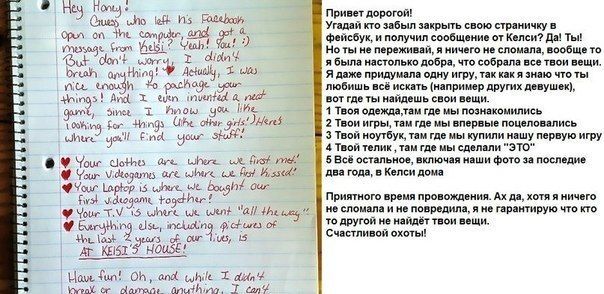 Hey Honey!
Guess who left his Facebook
open on the computer, and got a
message from Kelsi? Yeah! You! :)
But don't worry, I didn't
break anything! ♥ Actually, I was
nice enough to package your
things! And I even invented a neat
game, since I know you like
looking for things (like other girls!) Here's
where you'll find your stuff:
♥ Your clothes are where we first met!
♥ Your videogames are where we first kissed!
♥ Your Laptop is where we bought our
first videogame together!
♥ Your T.V is where we went "all the way"
♥ Everything else, including pictures of
the last 2 years of our lives, is
AT KELSI'S HOUSE!
Have fun! Oh, and while I didn't
break or damage anything, I can't
Привет дорогой!
Угадай кто забыл закрыть свою страничку в
фейсбук, и получил сообщение от Келси? Да! Ты!
Но ты не переживай, я ничего не сломала, вообще то
я была настолько добра, что собрала все твои вещи.
Я даже придумала одну игру, так как я знаю что ты
любишь всё искать (например других девушек),
вот где ты найдешь свои вещи.
1 Твоя одежда,там где мы познакомились
2 Твои игры, там где мы впервые поцеловались
3 Твой ноутбук, там где мы купили нашу первую игру
4 Твой телик , там где мы сделали "ЭТО"
5 Всё остальное, включая наши фото за последние
два года, в Келси дома
Приятного время провождения. Ах да, хотя я ничего
не сломала и не повредила, я не гарантирую что кто
то другой не найдёт твои вещи.
Счастливой охоты!